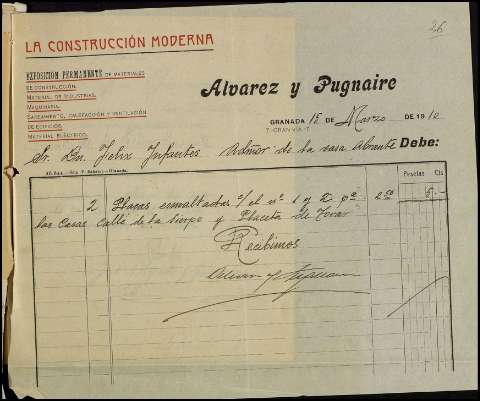 26
LA CONSTRUCCIÓN MODERNA
EXPOSICIÓN PERMANENTE DE MATERIALES
DE CONSTRUCCIÓN.
MATERIAL DE INDUSTRIAS.
MAQUINARIA.
SANEAMIENTO, CALEFACCIÓN Y VENTILACIÓN
DE EDIFICIOS.
MATERIAL ELÉCTRICO.
Alvarez y Pugnaire
GRANADA 15 de Marzo DE 1910
7-GRAN VIA-7
Sr. Dn. Felix Infantes Admor de la casa Abrante Debe:
Pesetas Cts
2 Placas esmaltadas c/ el nº 1 y 2 pª 2'50 5 -
las Casas Calle de la Sierpe y Placeta de Tovar
Recibimos
Alvarez y Pugnaire